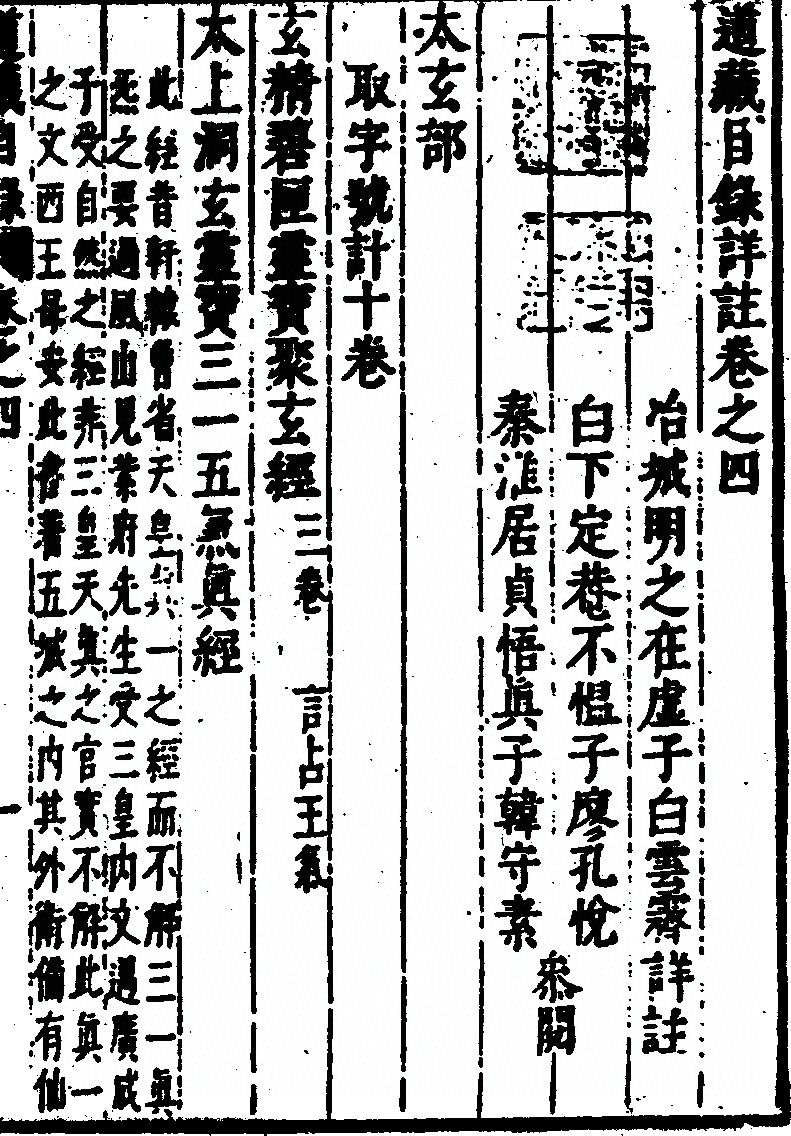 道藏目錄詳註卷之四
冶城明之在虛子白雲霽詳註
白下定巷不愠子廖孔悅
秦淮居貞悟眞子韓守素
叅閱
太玄部
取字號計十卷
玄精碧匣靈寶聚玄經三卷 言占王氣
太上洞玄靈寶三一五氣眞經
此經昔軒轅曾省天皇眞一之經而不解三一眞
炁之要過風山見紫府先生受三皇內文過廣成
子受自然之經菲三皇天眞之官實不解此眞一
之文西王母安此書著五城之內其外衛備有仙
道藏目錄卷之四
一